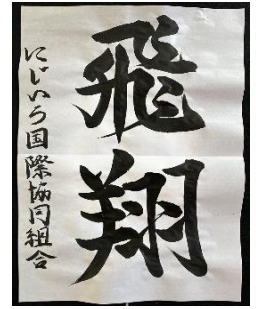 飛翔
にじいろ国際協同組合